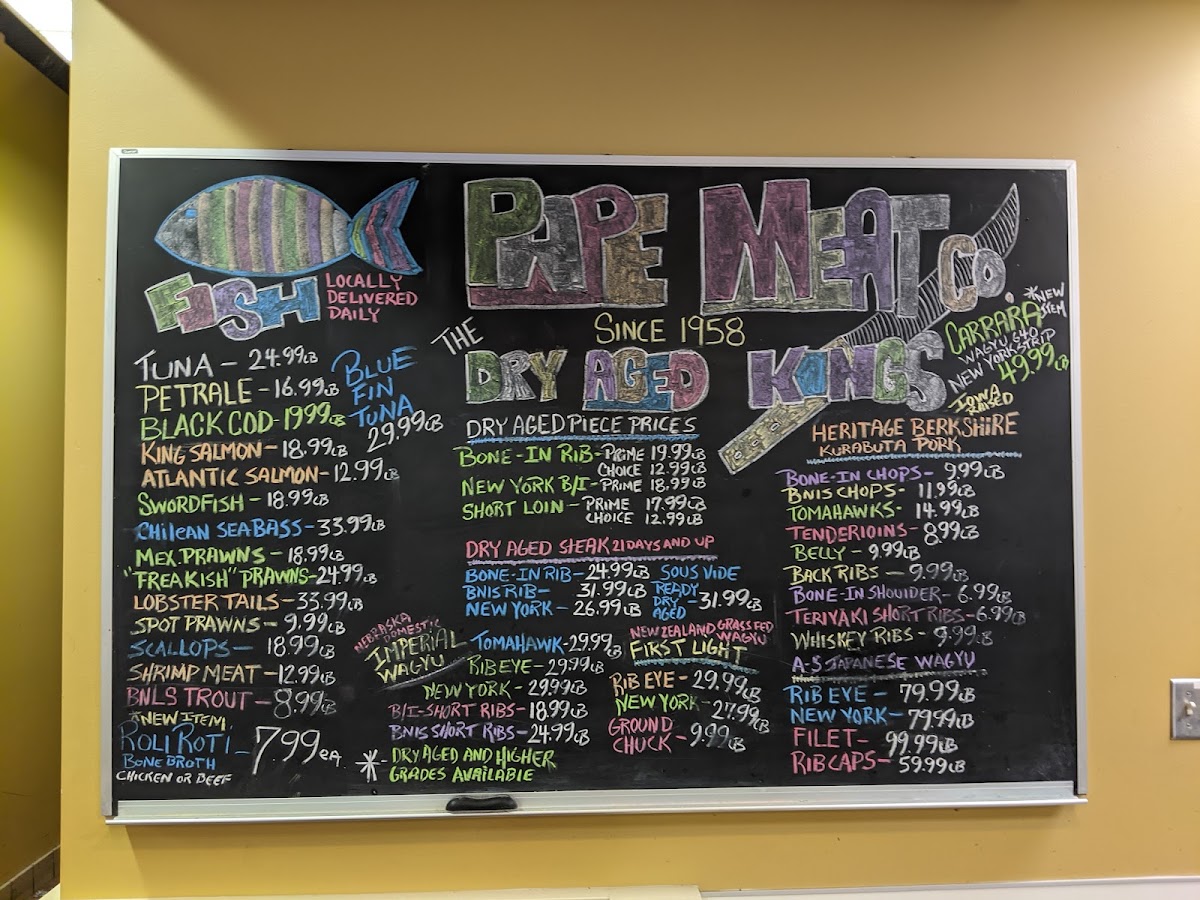 FISH
LOCALLY
DELIVERED
DAILY
TUNA - 24.99LB
PETRALE - 16.99LB
BLACK COD - 1999LB
KING SALMON - 18.99LB
ATLANTIC SALMON - 12.99LB
SWORDFISH - 18.99LB
CHILEAN SEABASS - 33.99LB
MEX. PRAWNS - 18.99LB
"FREAKISH" PRAWNS - 24.99LB
LOBSTER TAILS - 33.99LB
SPOT PRAWNS - 9.99LB
SCALLOPS - 18.99LB
SHRIMP MEAT - 12.99LB
BNLS TROUT - 8.99LB
*NEW ITEM,
ROLI ROTI - 7.99ea
BONE BROTH
CHICKEN OR BEEF
BLUE
FIN
TUNA
29.99LB
PAPE MEAT CO
SINCE 1958
THE
DRY AGED KINGS
*NEW ITEM
CARRARA
WAGYU 640
NEW YORK STRIP
49.99LB
DRY AGED PIECE PRICES
BONE-IN RIB - PRIME 19.99LB
CHOICE 12.99LB
NEW YORK B/I - PRIME 18.99LB
SHORT LOIN - PRIME 17.99LB
CHOICE 12.99LB
DRY AGED STEAK 21 DAYS AND UP
BONE-IN RIB - 24.99LB
BNLS RIB - 31.99LB
NEW YORK - 26.99LB
SOUS VIDE
READY
DRY
AGED - 31.99LB
NEBRASKA
DOMESTIC
IMPERIAL
WAGYU
TOMAHAWK - 29.99LB
RIB EYE - 29.99LB
NEW YORK - 29.99LB
B/I-SHORT RIBS - 18.99LB
BNLS SHORT RIBS - 24.99LB
* - DRY AGED AND HIGHER
GRADES AVAILABLE
NEW ZEALAND GRASS FED
WAGYU
FIRST LIGHT
RIB EYE - 29.99LB
NEW YORK - 27.99LB
GROUND
CHUCK - 9.99LB
IOWA
RAISED
HERITAGE BERKSHIRE
KURABUTA PORK
BONE-IN CHOPS - 9.99LB
BNLS CHOPS - 11.99LB
TOMAHAWKS - 14.99LB
TENDERLOINS - 8.99LB
BELLY - 9.99LB
BACK RIBS - 9.99LB
BONE-IN SHOULDER - 6.99LB
TERIYAKI SHORT RIBS - 6.99LB
WHISKEY RIBS - 9.99LB
A-5 JAPANESE WAGYU
RIB EYE - 79.99LB
NEW YORK - 79.99LB
FILET - 99.99LB
RIB CAPS - 59.99LB